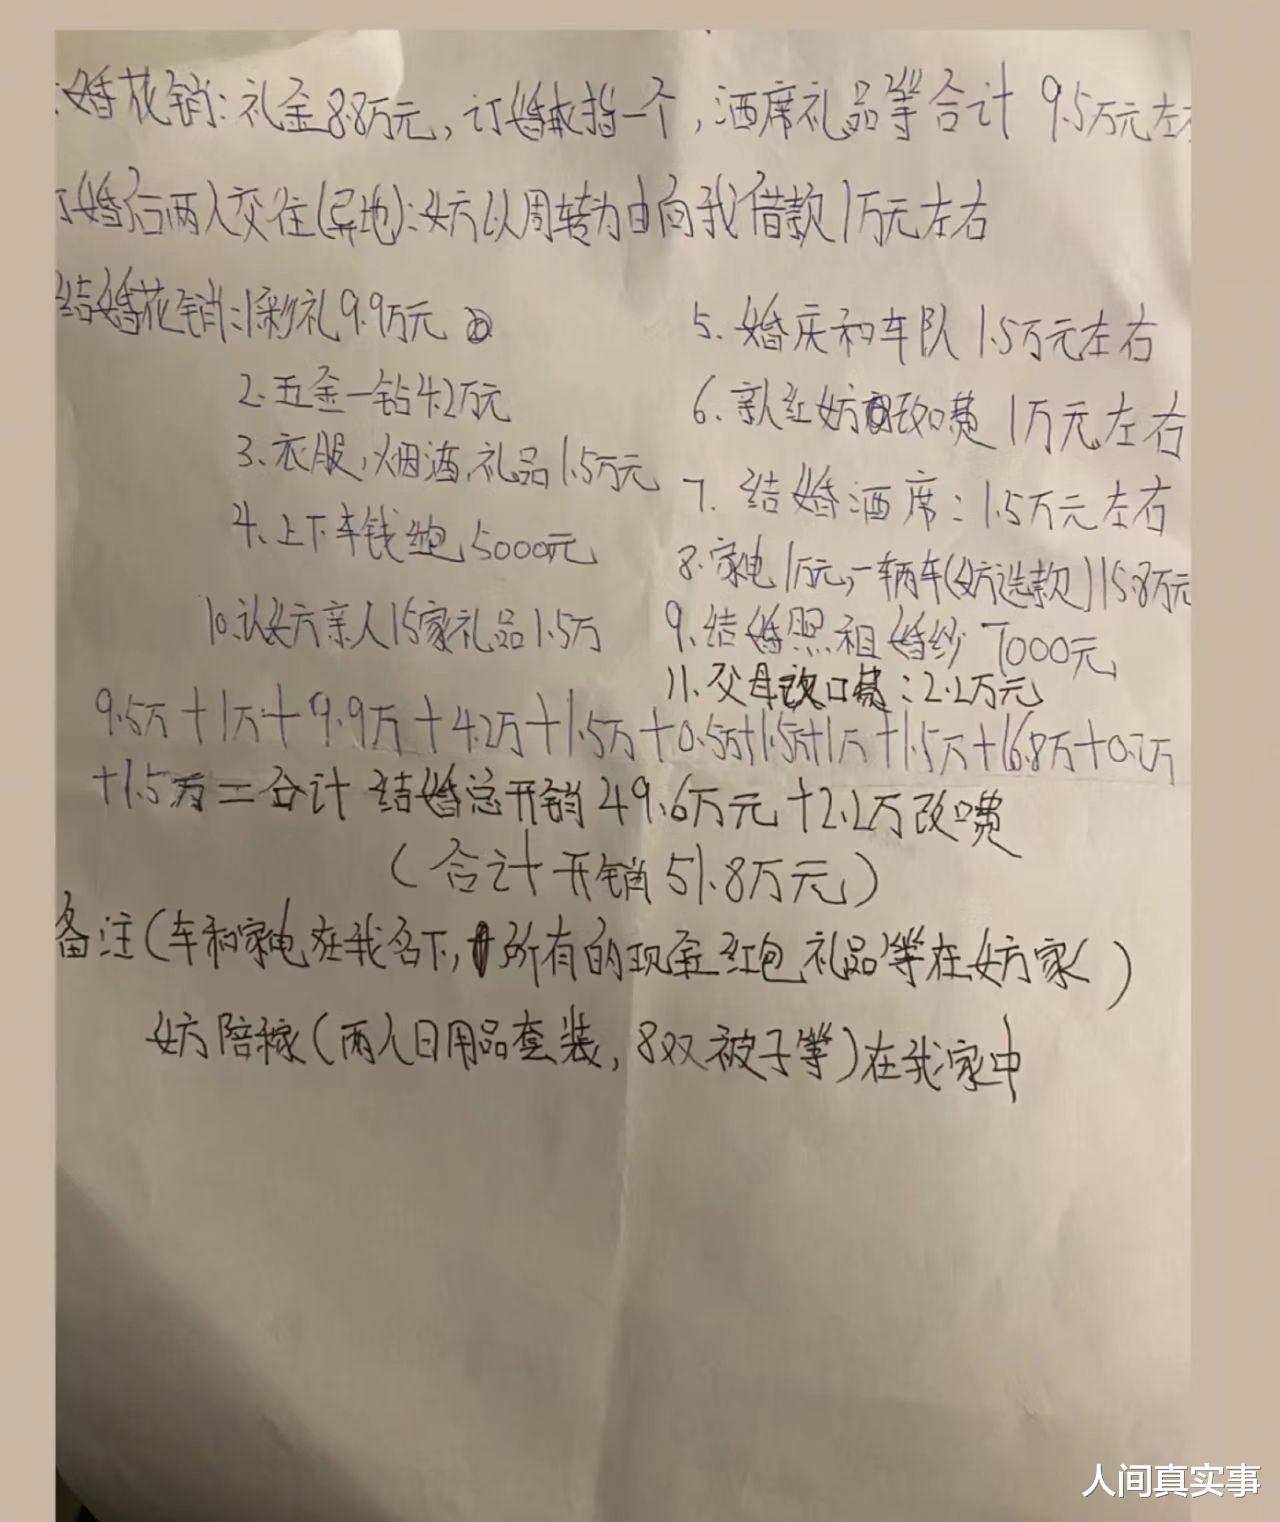 婚花销：礼金8.8万元，订婚戒指一个，酒席礼品等合计 9.5万元左右
订婚后两人交往(异地)：女方以周转为由向我借款1万元左右
结婚花销：1彩礼9.9万元
2.五金一钻4.2万元
3.衣服，烟酒，礼品1.5万元
4.上下车钱包5000元
5.婚庆和车队1.5万元左右
6.亲红女方改口费1万元左右
7.结婚酒席：1.5万元左右
8.家电1万元，一辆车(女方选款)15.8万元
9.结婚照租婚纱7000元
10.认女方亲人15家礼品1.5万
11.父母改口费：2.2万元
9.5万+1万+9.9万+4.2万+1.5万+0.5万+1.5万+1万+1.5万+16.8万+0.7万
+1.5万=合计 结婚总开销49.6万元+2.2万改口费
(合计开销51.8万元)
备注(车和家电在我名下，所有的现金红包礼品等在女方家)
女方陪稼(两人日用品套装，8双被子等)在我家中
人间真实事